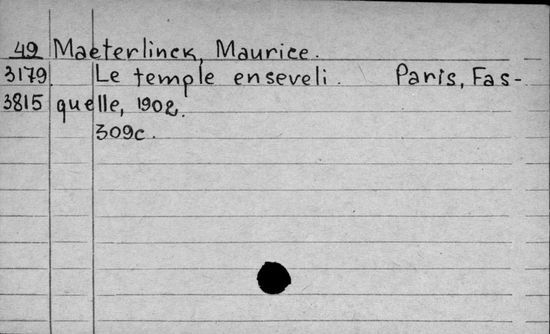 49 Maeterlinck, Maurice.
3179 Le temple enseveli. Paris, Fas-
3815 quelle, 1902.
309c.